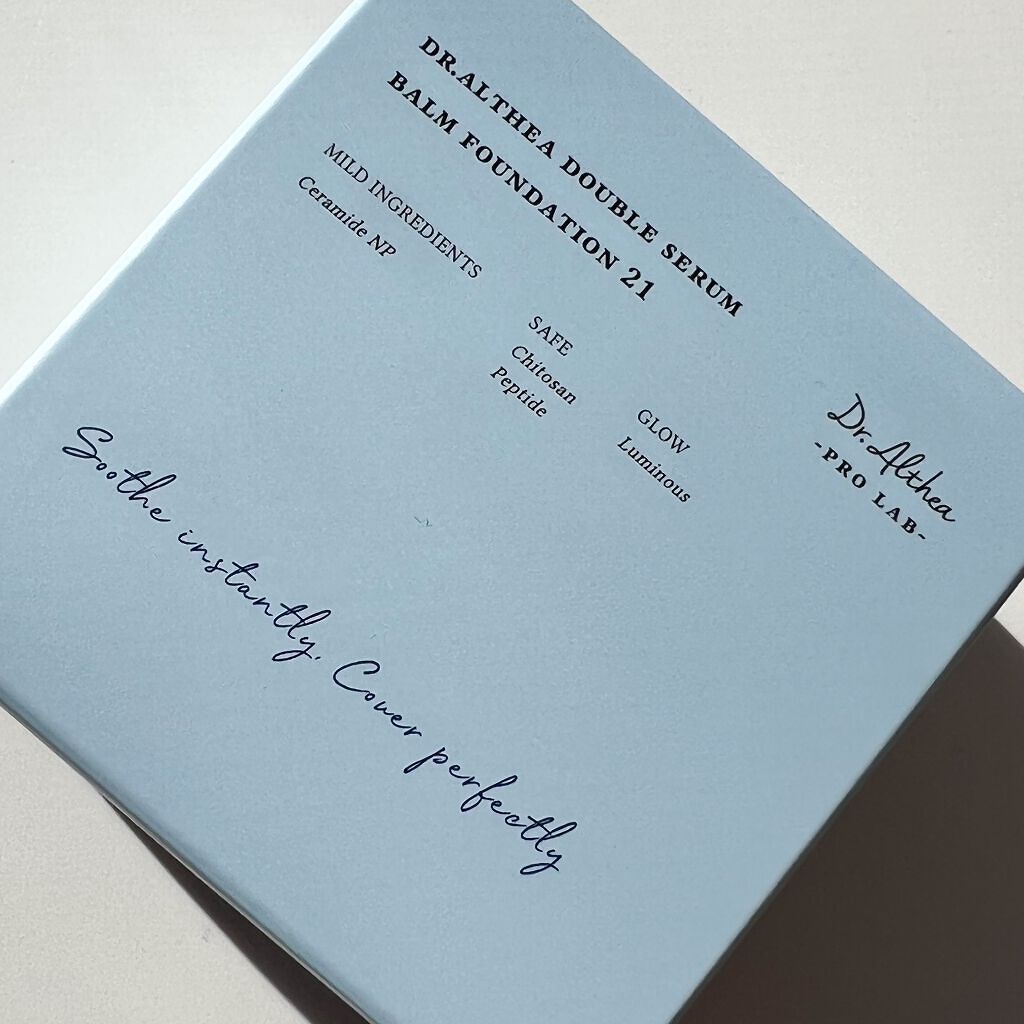 DR.ALTHEA DOUBLE SERUM
BALM FOUNDATION 21
MILD INGREDIENTS
Ceramide NP
SAFE
Chitosan
Peptide
GLOW
Luminous
Dr.Althea
-PRO LAB-
Soothe instantly, Cover perfectly